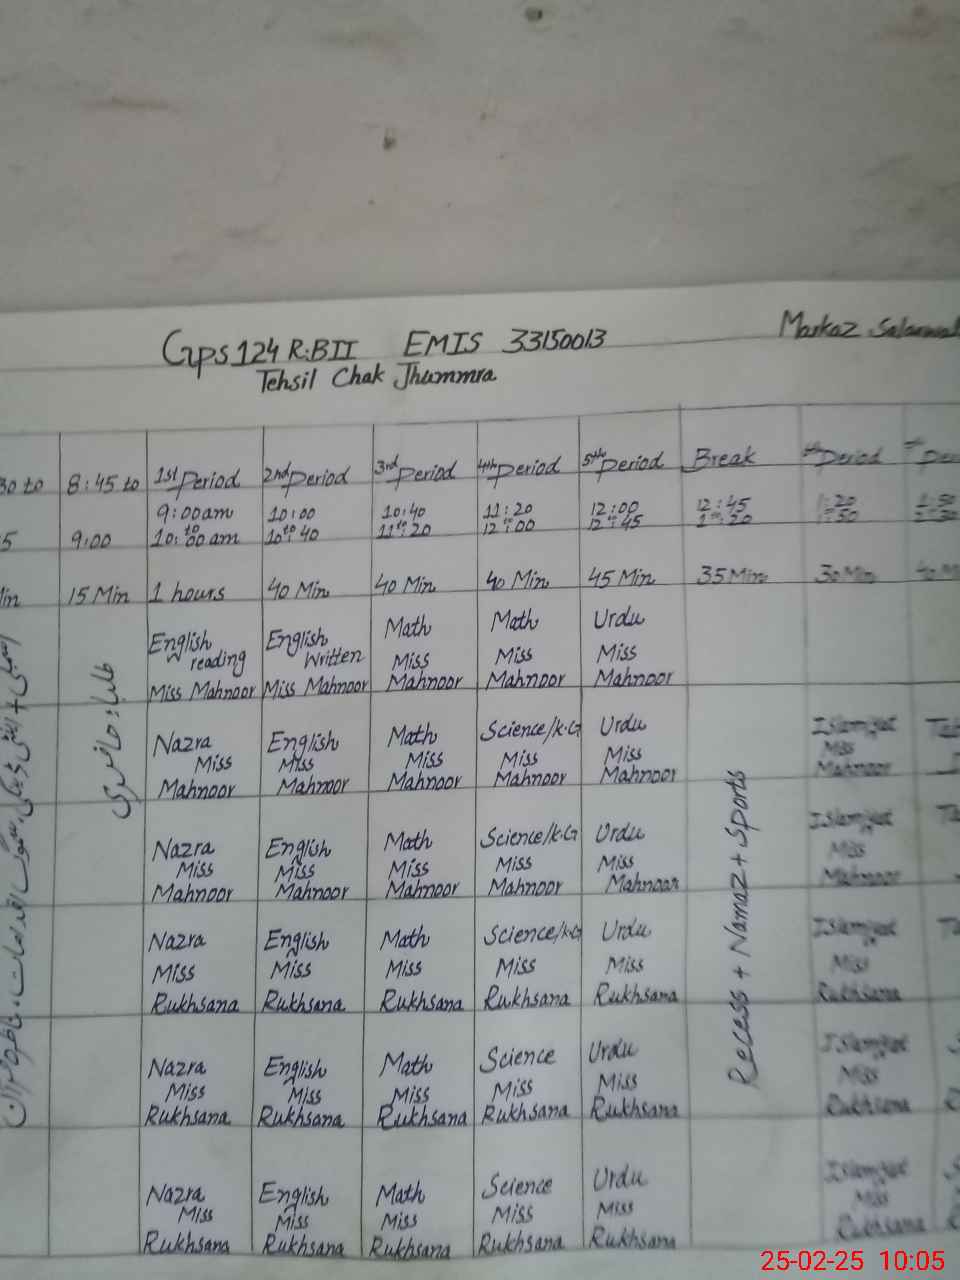 Gps 124 R.B II EMIS 33150013 Markaz
Tehsil Chak Jhummra
30 to 8:45 to 1st Period 2nd Period 3rd Period 4th Period 5th Period Break th Period
9:00am 10:00 10:40 11:20 12:00 12:45 1:20 1:50
5 9:00 to 10:00 am to 10:40 to 11:20 to 12:00 to 12:45 to 1:20 1:50
Min 15 Min 1 hours 40 Min 40 Min 40 Min 45 Min 35 Min 30 Min 40 M
طلباء حاضری
Recess + Namaz + Sports
English reading English Written Math Math Urdu
Miss Mahnoor Miss Mahnoor Miss Mahnoor Miss Mahnoor Miss Mahnoor
Nazra English Math Science/k.G Urdu Islamiyat
Miss Miss Miss Miss Miss Miss
Mahnoor Mahnoor Mahnoor Mahnoor Mahnoor Mahnoor
Nazra English Math Science/k.G Urdu Islamiyat
Miss Miss Miss Miss Miss Miss
Mahnoor Mahnoor Mahnoor Mahnoor Mahnoor Mahnoor
Nazra English Math Science/k.G Urdu Islamiyat
Miss Miss Miss Miss Miss Miss
Rukhsana Rukhsana Rukhsana Rukhsana Rukhsana Rukhsana
Nazra English Math Science Urdu Islamiyat
Miss Miss Miss Miss Miss Miss
Rukhsana Rukhsana Rukhsana Rukhsana Rukhsana Rukhsana
Nazra English Math Science Urdu Islamiyat
Miss Miss Miss Miss Miss Miss
Rukhsana Rukhsana Rukhsana Rukhsana Rukhsana Rukhsana
25-02-25 10:05